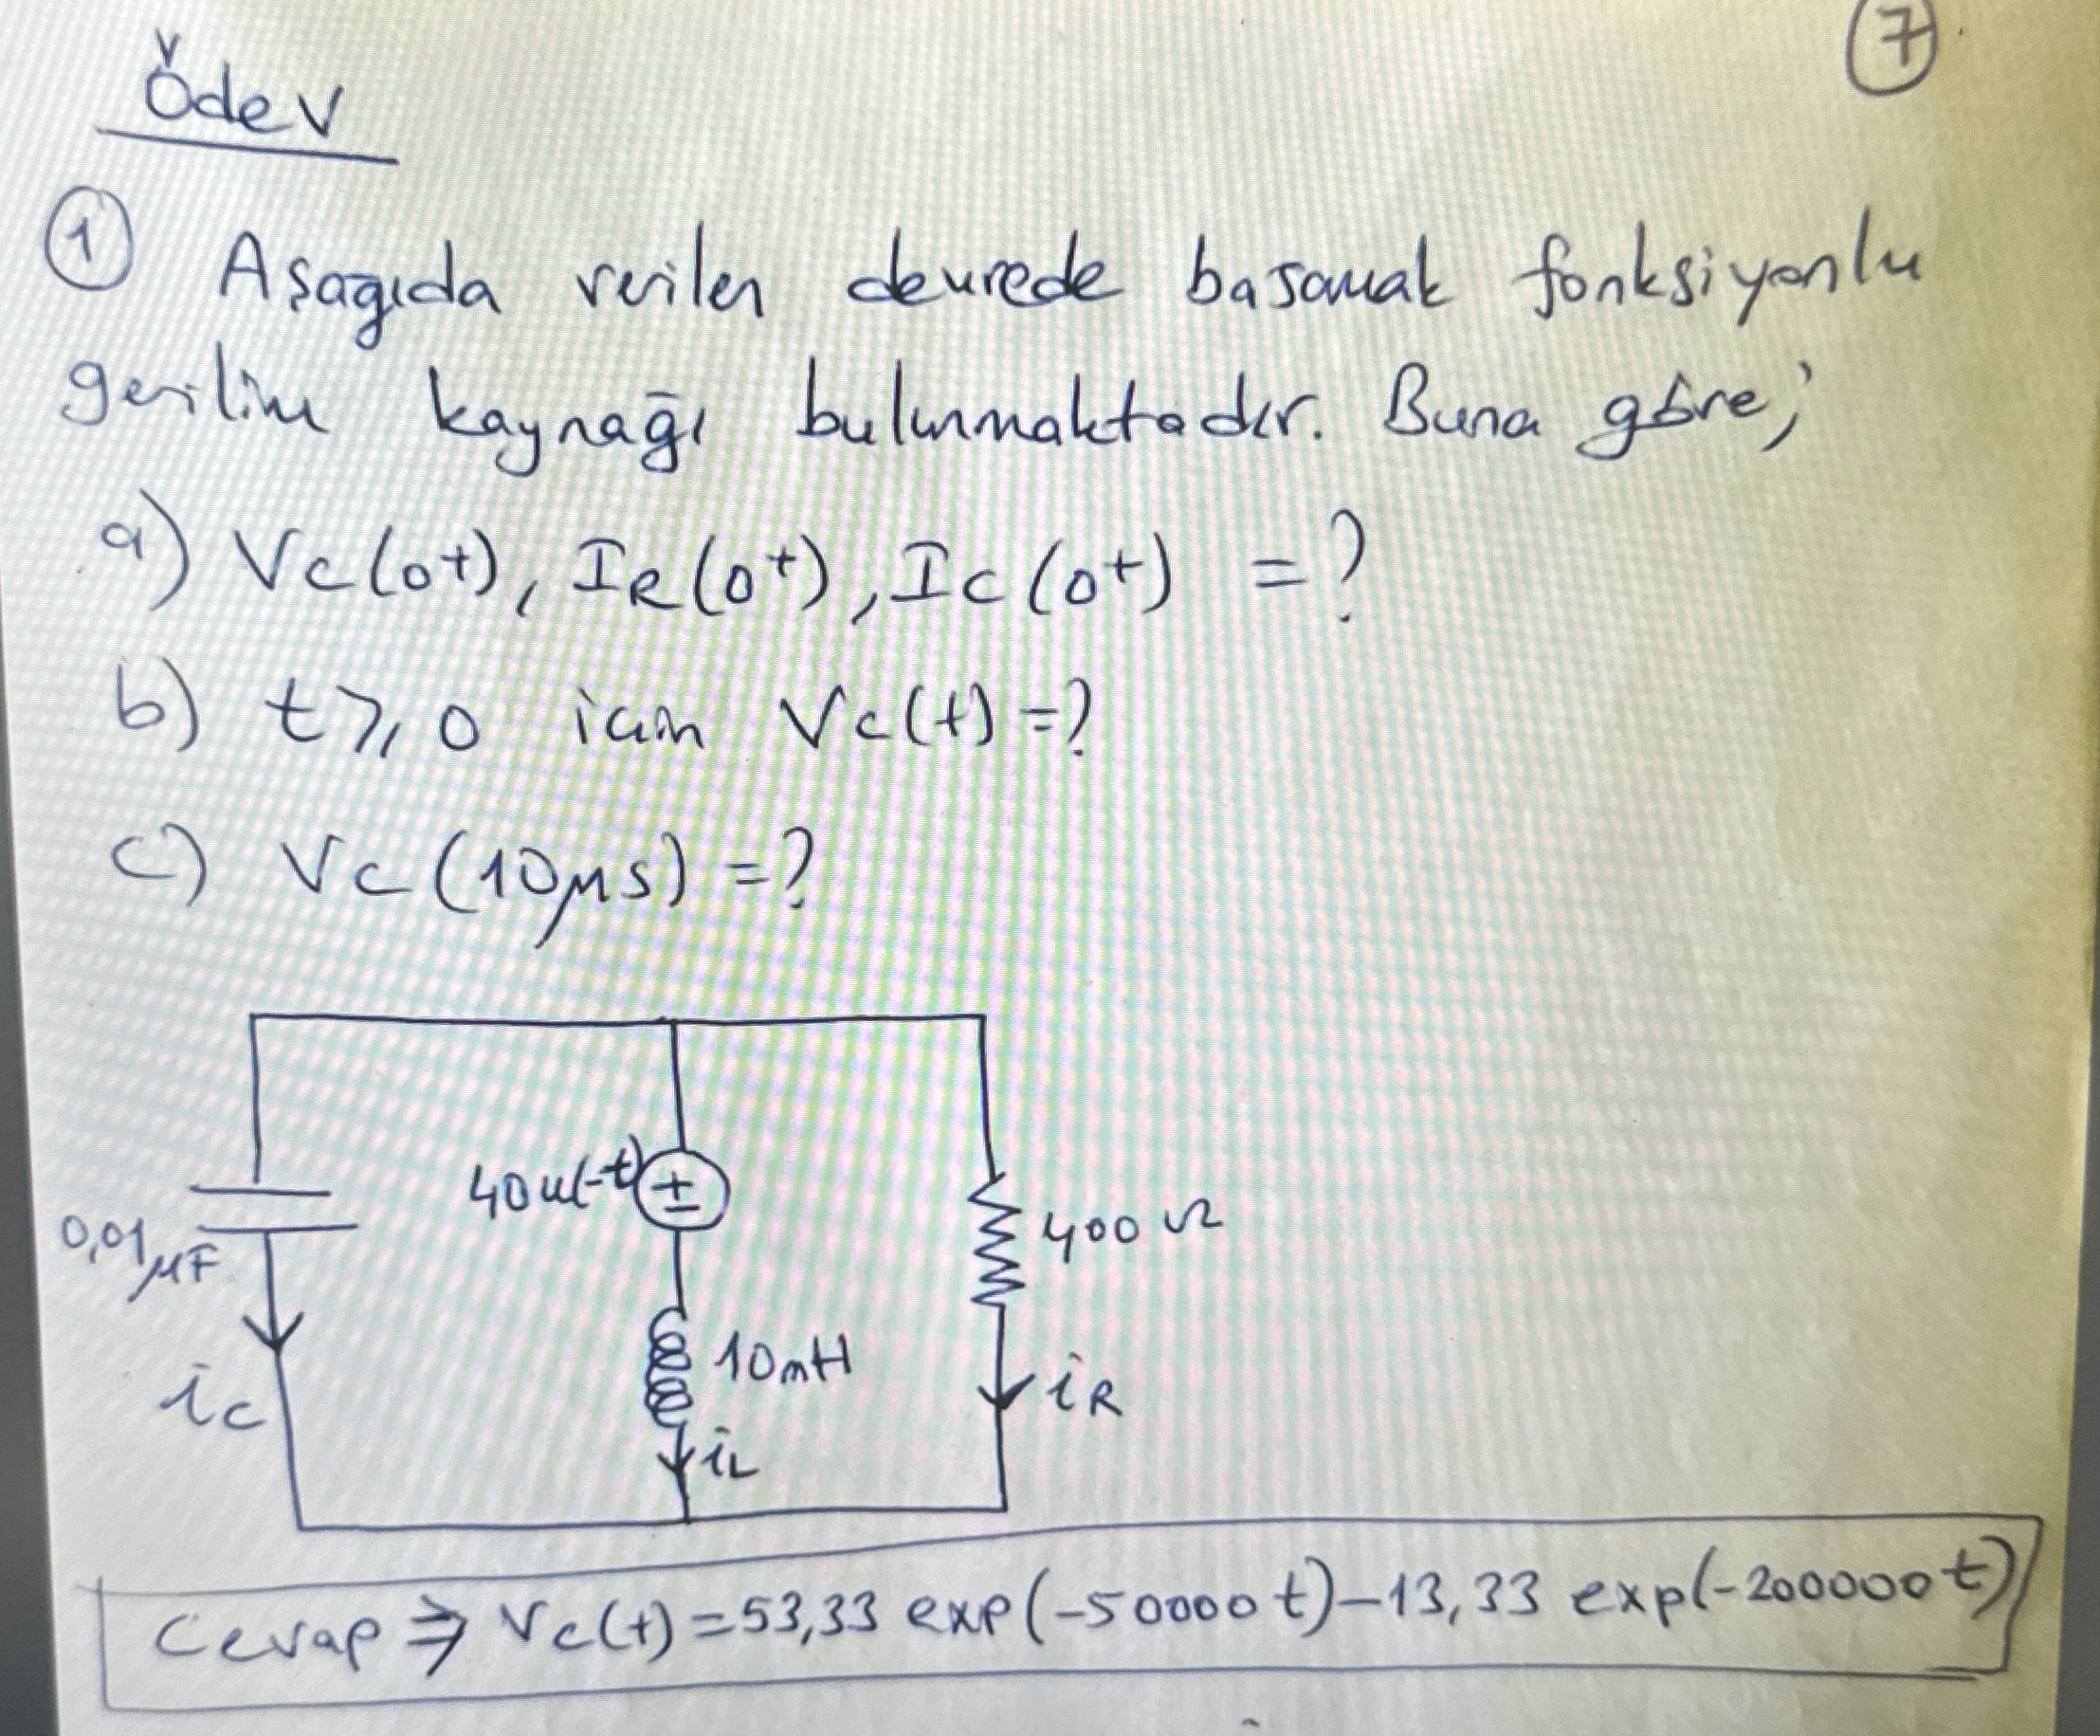 7
Ödev
1 Aşağıda verilen devrede basamak fonksiyonlu
gerilim kaynağı bulunmaktadır. Buna göre;
a) Vc(0+), IR(0+), Ic(0+) =?
b) t≥0 için Vc(t)=?
c) Vc(10μs)=?
40u(-t)
+
-
0,01μF
400Ω
10mH
ic
iL
iR
Cevap ⇒ Vc(t)=53,33 exp(-50000t)-13,33 exp(-200000t)